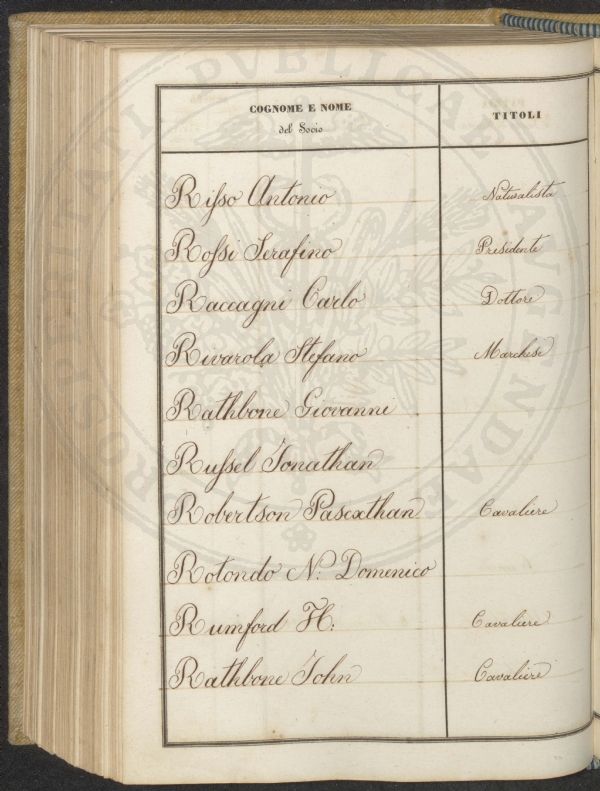 COGNOME E NOME
del Socio
TITOLI
Risso Antonio Naturalista
Rossi Serafino Presidente
Raccagni Carlo Dottore
Rivarola Stefano Marchese
Rathbone Giovanni
Russel Jonathan
Robertson Cavaliere
Rotondo N. Domenico
Rumford H: Cavaliere
Rathbone John Cavaliere